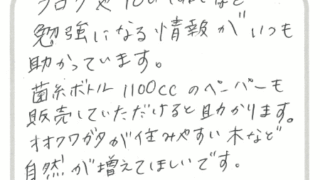 ブログや YouTubeなど
勉強になる情報がいつも
助かっています。
菌糸ボトル1100ccのペーパーも
販売していただけると助かります。
オオクワガタが住みやすい木など
自然が増えてほしいです。